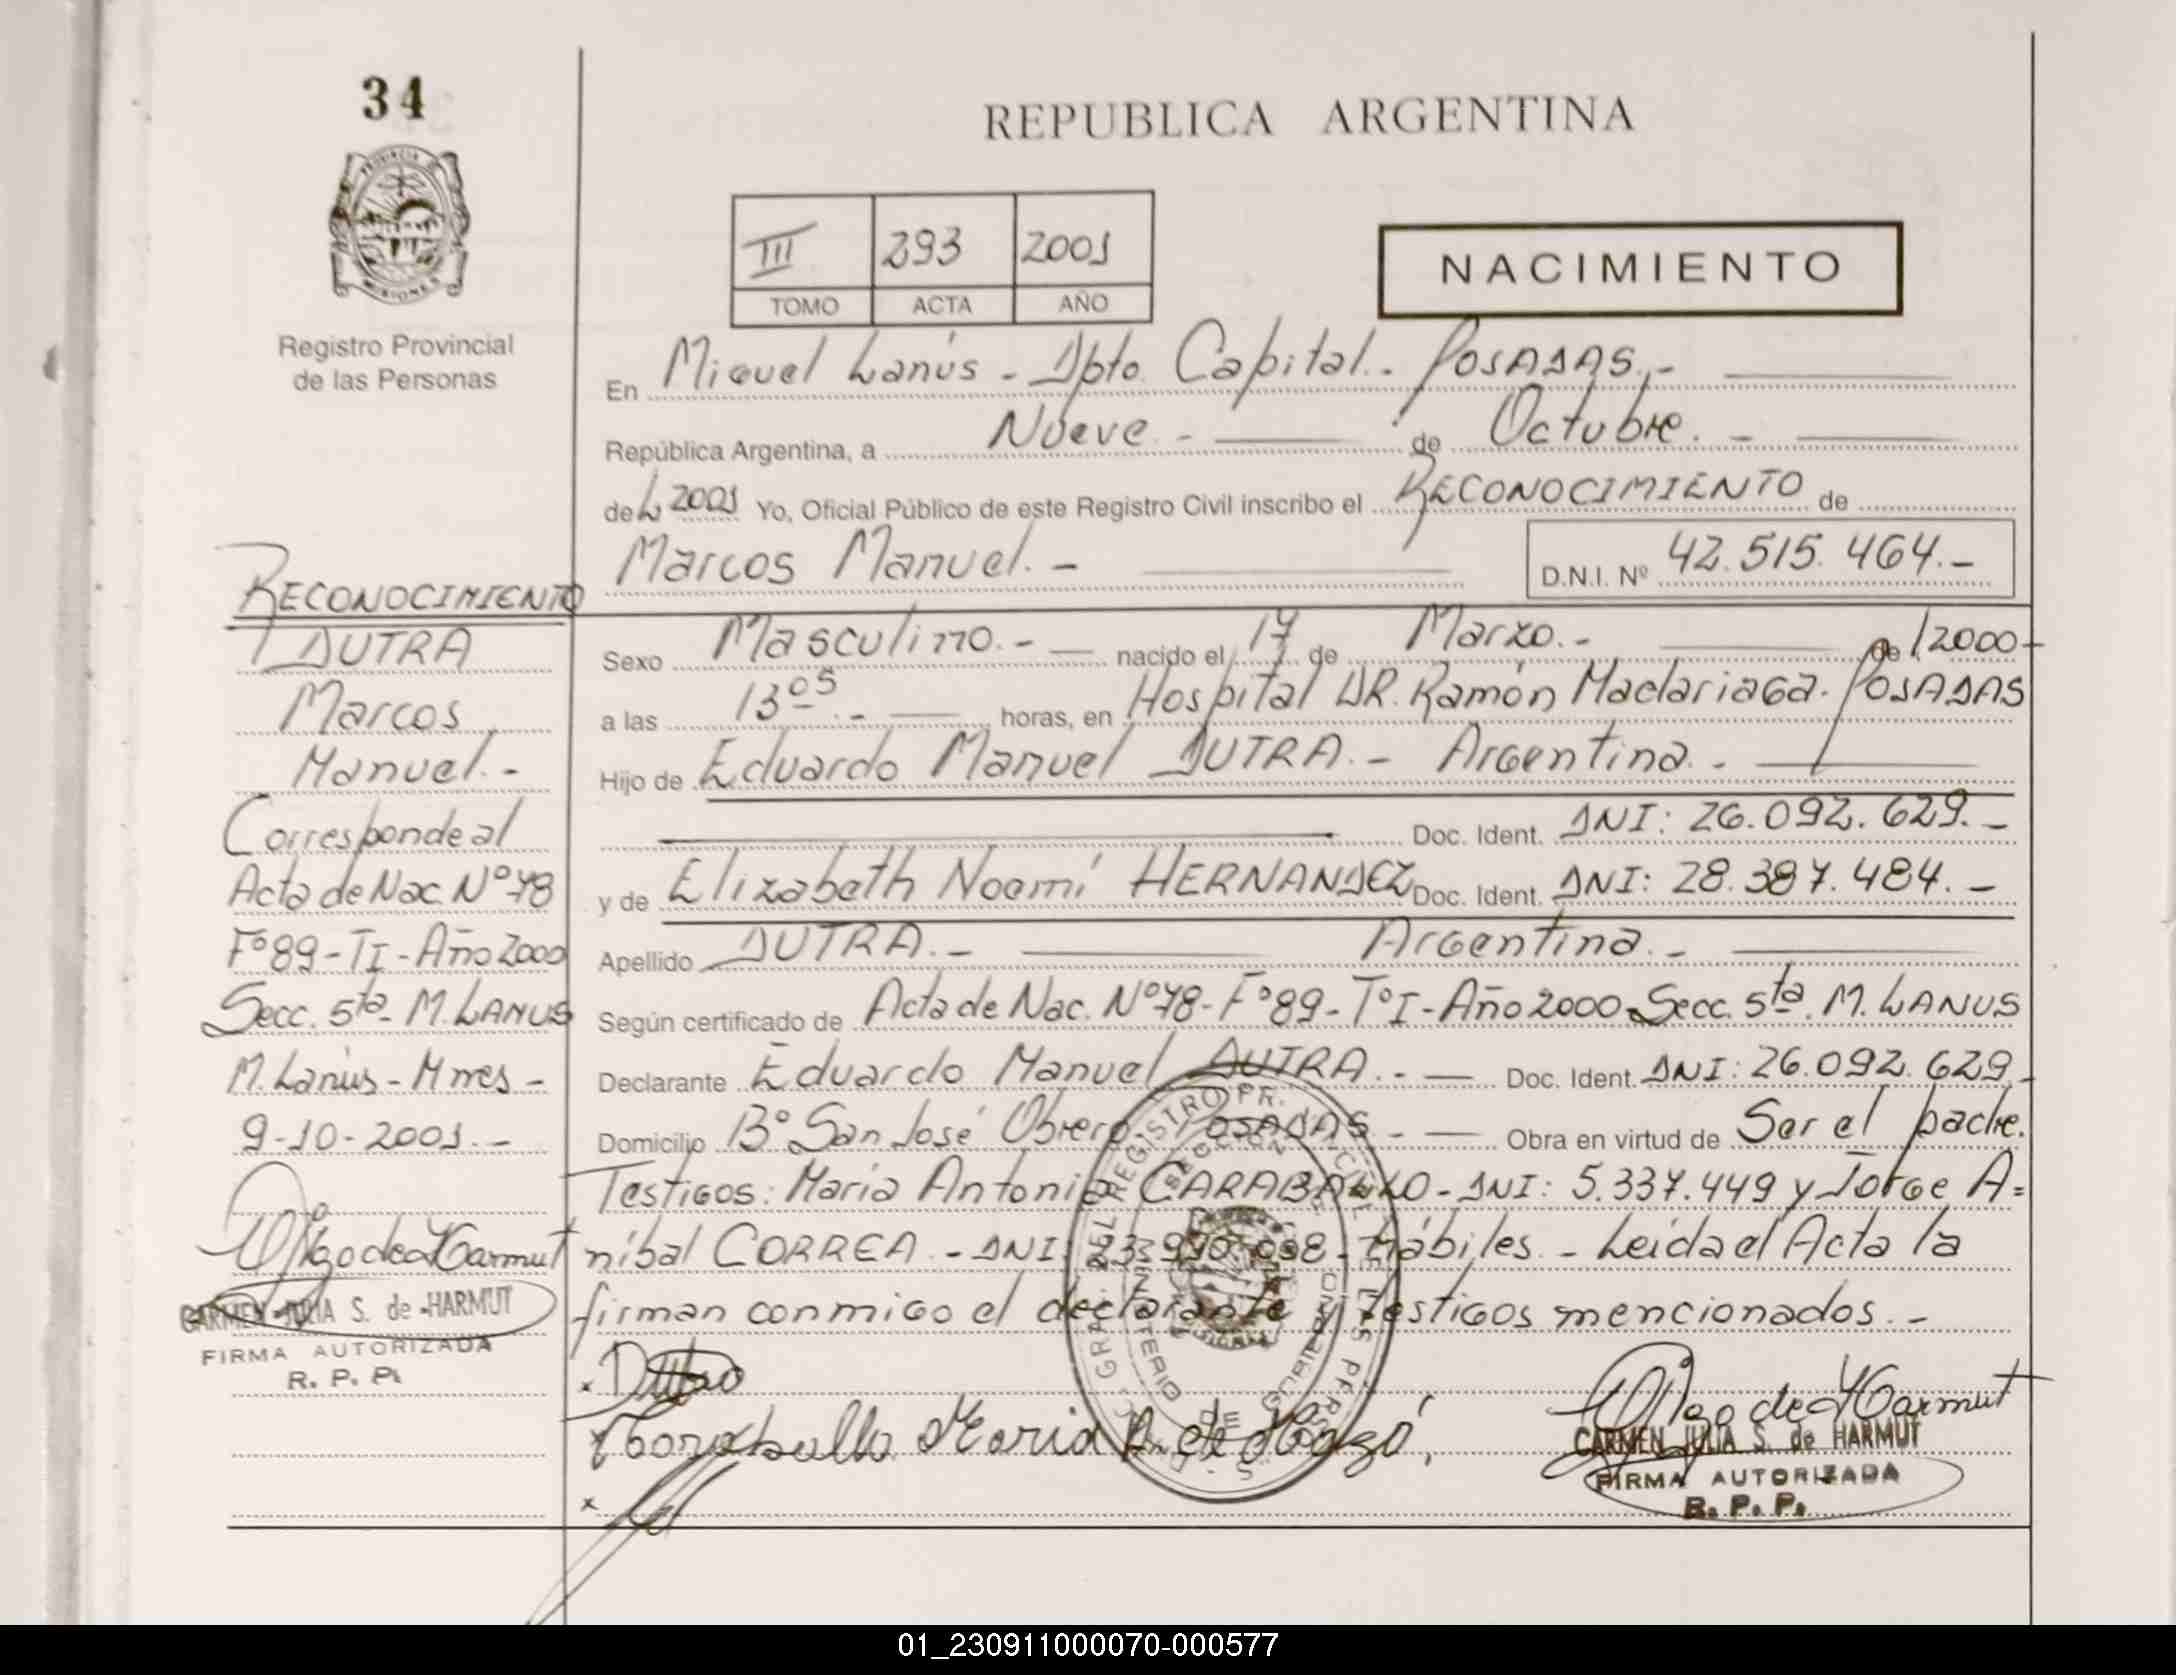 34
REPUBLICA ARGENTINA
PROVINCIA DE MISIONES
Registro Provincial
de las Personas
III 293 2001
TOMO ACTA AÑO
NACIMIENTO
En Miguel Lanús - Dpto. Capital.- POSADAS.-
República Argentina, a Nueve.- de Octubre.-
del 2001 Yo, Oficial Público de este Registro Civil inscribo el RECONOCIMIENTO de
Marcos Manuel.- D.N.I. Nº 42.515.464.-
Sexo Masculino.- nacido el 17 de Marzo.- de 2000-
a las 13 05.- horas, en Hospital DR. Ramón Madariaga. POSADAS
Hijo de Eduardo Manuel DUTRA.- Argentina.-
Doc. Ident. DNI: 26.092.629.-
y de Elizabeth Noemí HERNANDEZ Doc. Ident. DNI: 28.387.484.-
Apellido DUTRA.- Argentina.-
Según certificado de Acta de Nac. Nº78-Fº89-TºI-Año 2000-Secc. 5ta. M. LANUS
Declarante Eduardo Manuel DUTRA.- Doc. Ident. DNI: 26.092.629-
Domicilio Bº San José Obrero POSADAS.- Obra en virtud de Ser el padre.
Testigos: María Antonia CARABALLO-DNI: 5.337.449 y Jorge A=
níbal CORREA.-DNI: Hábiles.-Leída el Acta la
firman conmigo el declarante y testigos mencionados.-
RECONOCIMIENTO
DUTRA
Marcos
Manuel.-
Corresponde al
Acta de Nac. Nº78
Fº89-TI-Año 2000
Secc. 5ta- M. LANUS
M. Lanús-Mnes-
9-10-2001.-
CARMEN JULIA S. de HARMUT
FIRMA AUTORIZADA
R. P. P.
x Dutra
x Caraballo Maria A. de
x
CARMEN JULIA S. de HARMUT
FIRMA AUTORIZADA
R. P. P.
01_230911000070-000577